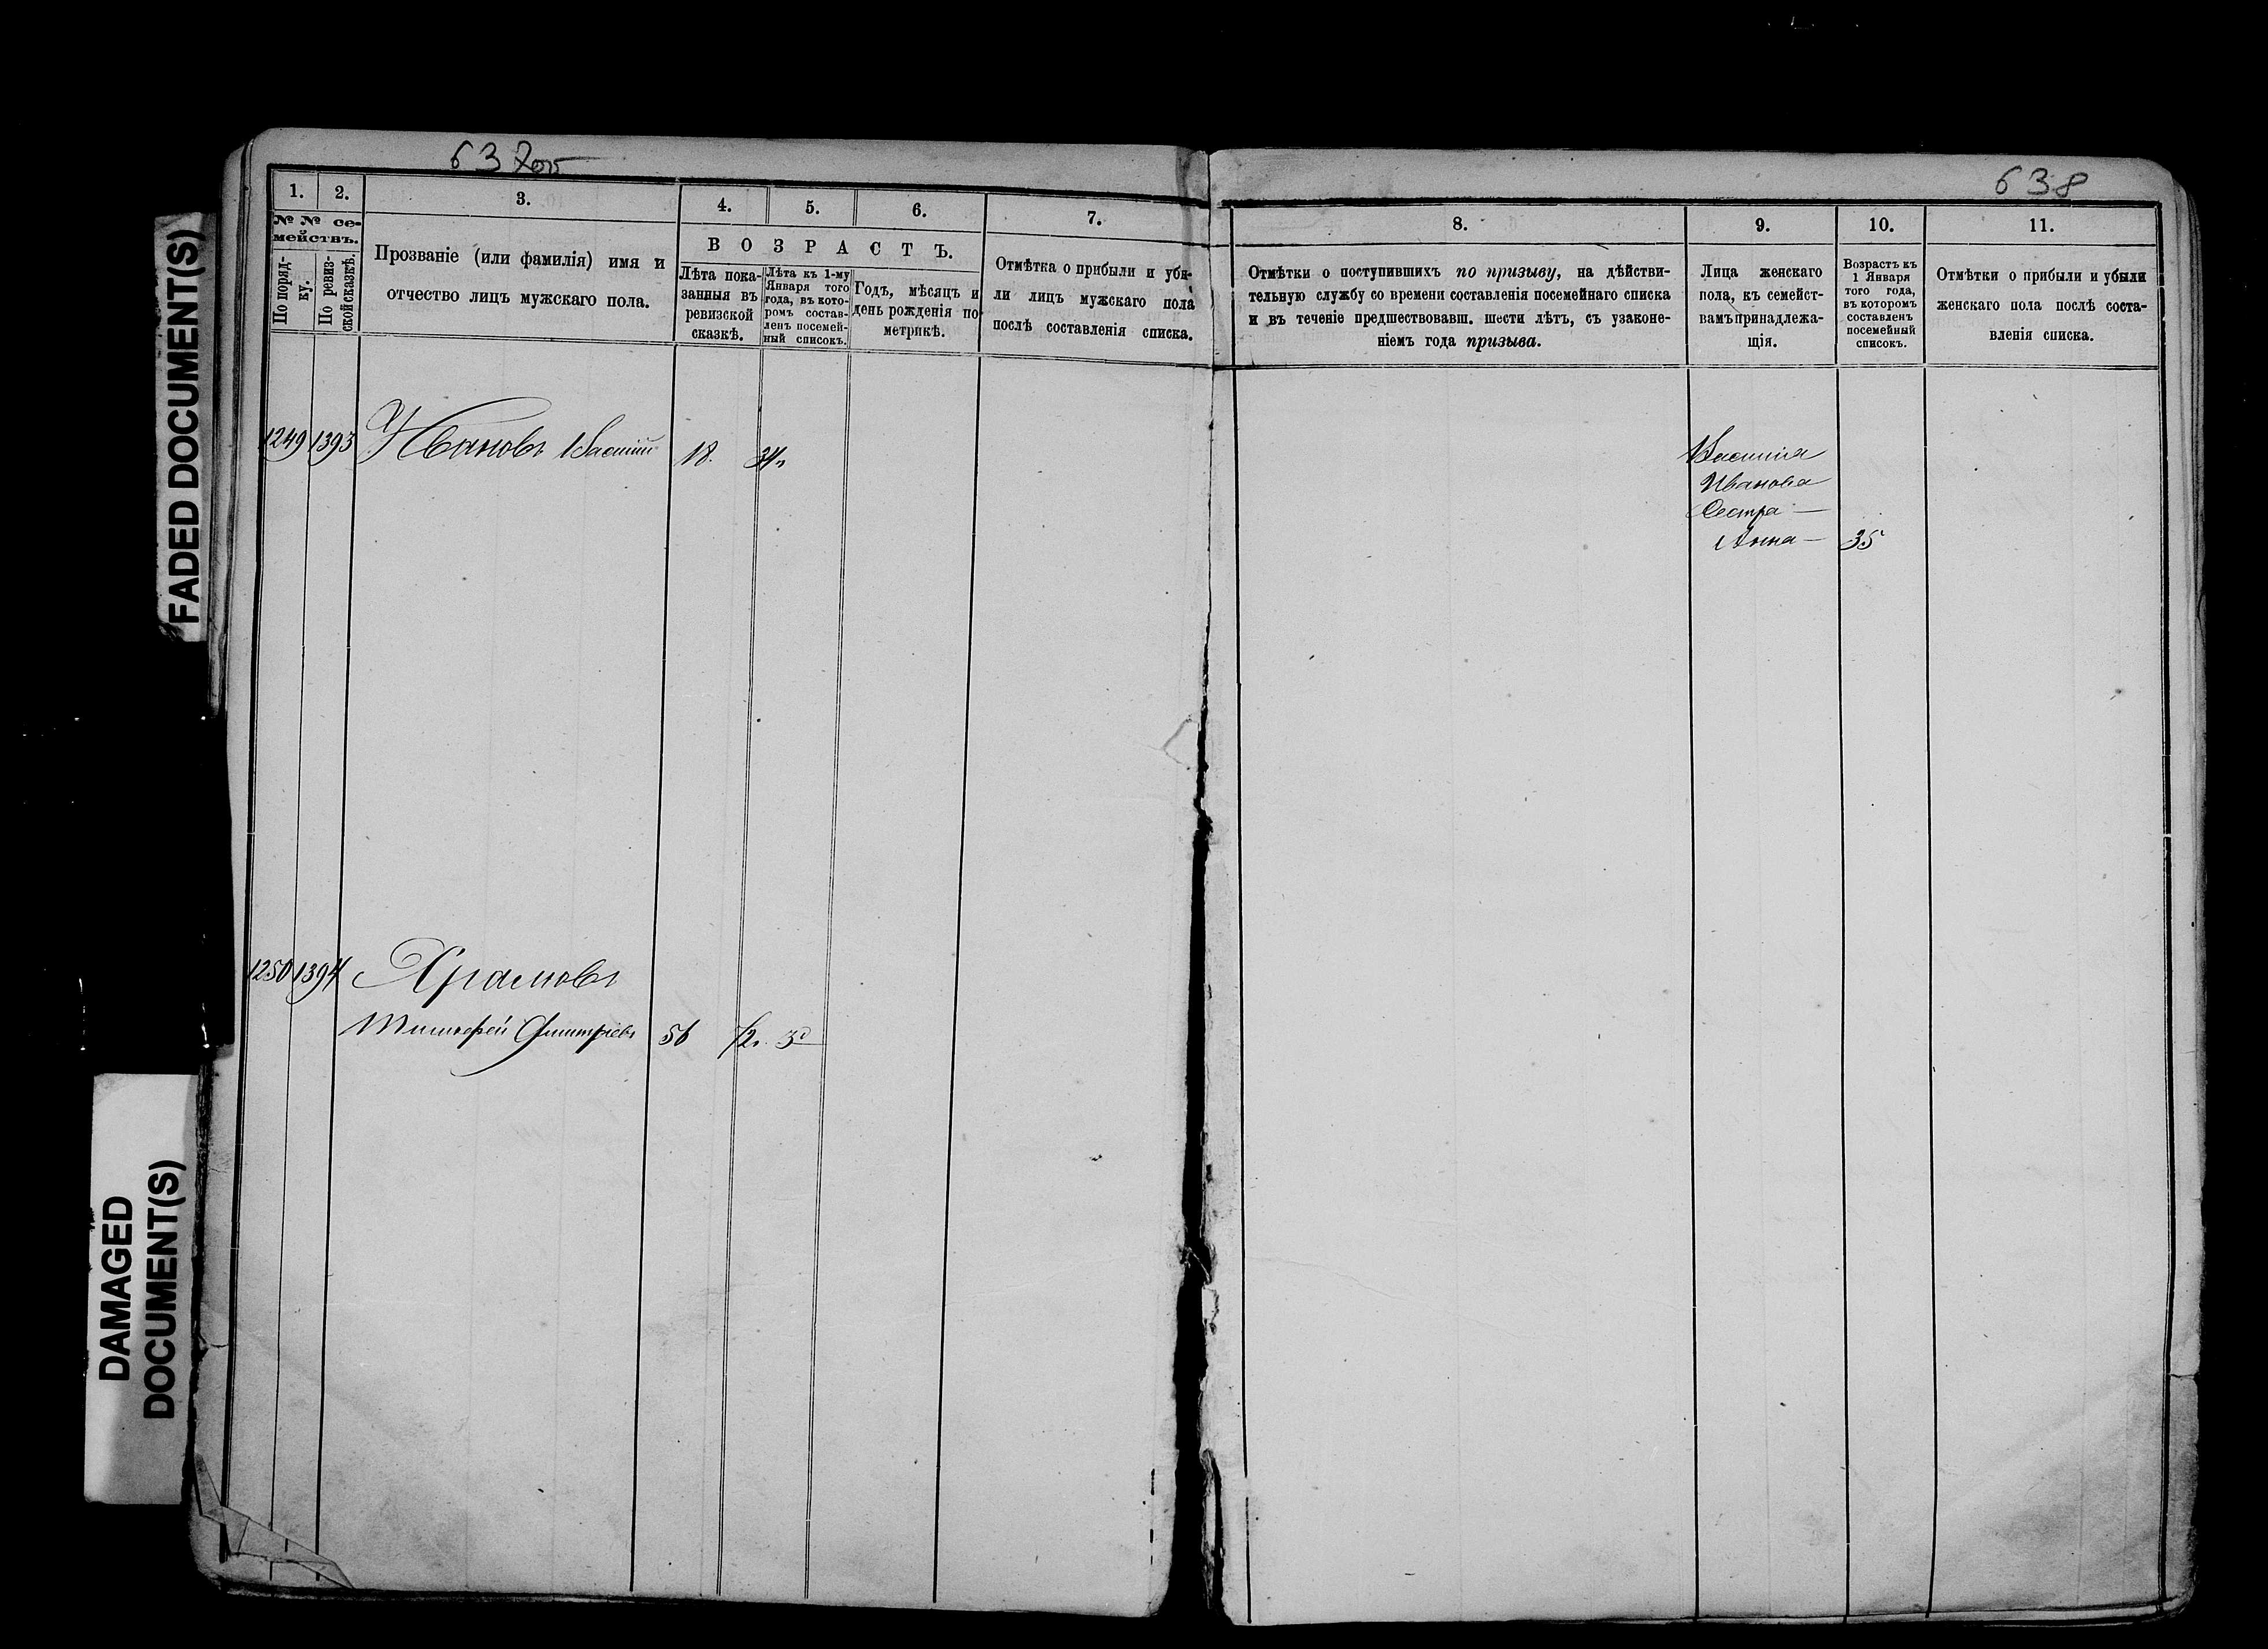 FADED DOCUMENT(S)
DAMAGED
DOCUMENT(S)
637 об
1. 2. 3. 4. 5. 6. 7.
№ № се-
мействъ.
По поряд-
ку.
По ревиз-
ской сказкѣ.
Прозваніе (или фамилія) имя и
отчество лицъ мужскаго пола.
В О З Р А С Т Ъ.
Лѣта пока-
занныя въ
ревизской
сказкѣ.
Лѣта къ 1-му
Января того
года, въ кото-
ромъ состав-
ленъ посемей-
ный списокъ.
Годъ, мѣсяцъ и
день рожденія по
метрикѣ.
Отмѣтка о прибыли и убы-
ли лицъ мужскаго пола
послѣ составленія списка.
1249 1393 Ивановъ Василій 18. 34
1250 1394 Храмовъ
Тимофей Дмитріевъ 56 72.
638
8. 9. 10. 11.
Отмѣтки о поступившихъ по призыву, на дѣйстви-
тельную службу со времени составленія посемейнаго списка
и въ теченіе предшествовавш. шести лѣтъ, съ узаконе-
ніемъ года призыва.
Лица женскаго
пола, къ семейст-
вамъ принадлежа-
щія.
Возрастъ къ
1 Января
того года,
въ которомъ
составленъ
посемейный
списокъ.
Отмѣтки о прибыли и убыли
женскаго пола послѣ соста-
вленія списка.
Василія
Иванова
Сестра —
Анна — 35